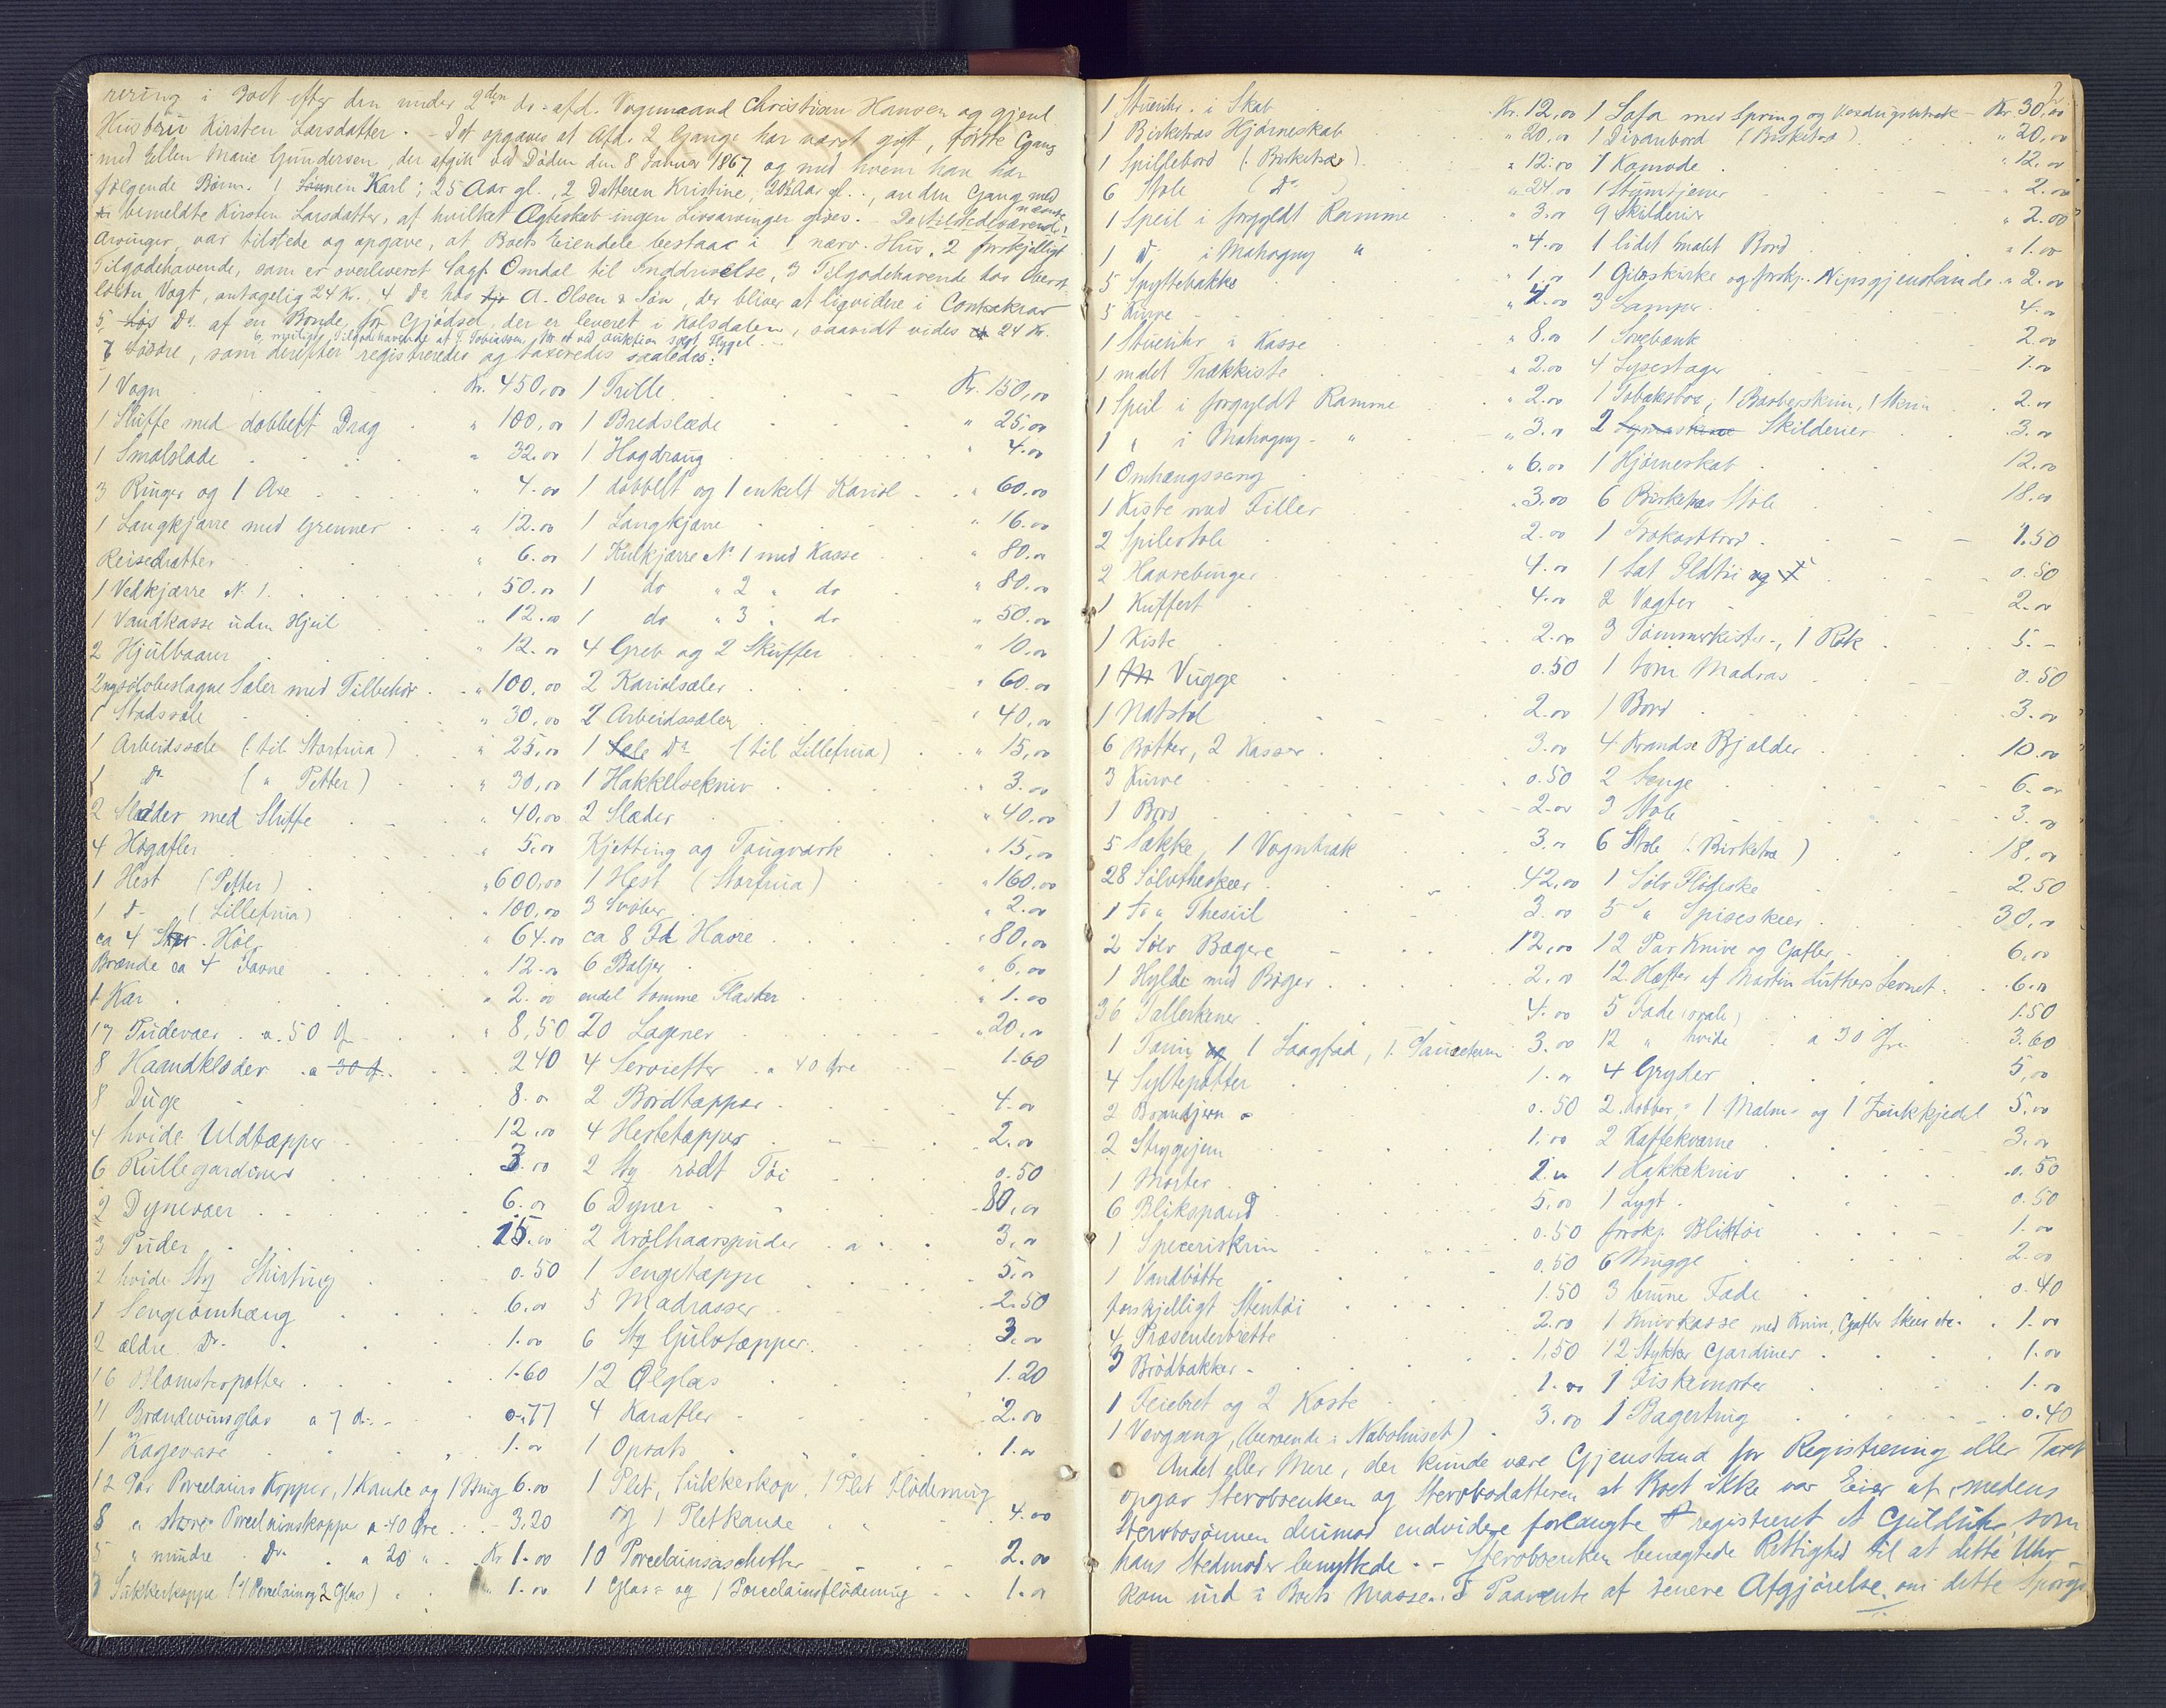 rering i Boet efter den under 2den ds. afd. Vognmand Christian Hansen og gjenl.
Hustru Kirsten Larsdatter. - Det opgaves at Afd. 2 Gange har været gift, første Gang
med Ellen Marie Gundersen, der afgik ved Døden den 8 Januar 1867 og med hvem han har
følgende Børn. 1 Sønnen Karl, 25 Aar gl., 2 Datteren Kristine, 20½ Aar gl., anden Gang med
bemeldte Kirsten Larsdatter, af hvilket Ægteskab ingen Livsarvinger gives. - De tilstedeværende
Arvinger var tilstede og opgave, at Boets Eiendele bestaar i 1 nærv. Hus. 2 forskjelligt
Tilgodehavende, som er overleveret Sagf. Omdal til Inddrivelse, 3 Tilgodehavende hos Oberst
Vogt, antagelig 24 Kr., 4 Do hos A. Olsen & Søn, der bliver at ligvidere i Contrakrav
5, Do. af en Bonde for Gjødsel, der er leveret i Kolsdalen, saavidt vides 24 Kr.
6, muligt Tilgodehavende af T. Tobiassen, for et ved Auktion solgt Hygel.
7 Løsøre, som derefter registreredes og taxeredes saaledes:
1 Vogn Kr. 450,00 1 Trille Kr. 150,00
1 Sluffe med dobbelt Drag " 100,00 1 Bredslæde " 25,00
1 Smalslæde " 32.00 1 Hogdraug " 4.00
3 Ringer og 1 Axe " 4.00 1 dobbelt og 1 enkelt Kariol " 60.00
1 Langkjærre med Grenner " 12.00 1 Langkjærre " 16.00
Reisedratter " 6.00 1 Kulkjærre No 1 med Kasse " 80.00
1 Vedkjærre No 1. " 50.00 1 do " 2 " do " 80.00
1 Vandkasse uden Hjul " 12.00 1 do " 3 " do " 50.00
2 Hjulbaarer " 12.00 4 Greb og 2 Skuffer " 10.00
2 nysølvbeslagne Sæler med Tilbehør " 100,00 2 Kariolsæler " 60.00
1 Stadssæle " 30,00 2 Arbeidssæler " 40,00
1 Arbeidssæle (til Storfrua) " 25,00 1 Do (til Lillefrua) " 15,00
1 Do (" Petter) " 30,00 1 Hakkelsekniv " 3.00
2 Slæder med Sluffe " 40,00 2 Slæder " 40,00
4 Høgafler " 5,00 Kjetting og Tougværk " 15,00
1 Hest (Petter) " 600,00 1 Hest (Storfrua) " 160.00
1 Do (Lillefrua) " 100,00 3 Svøber " 2.00
ca 4 Høie " 64.00 ca 8 Td Havre " 80,00
Brænde ca 4 Favne " 12.00 6 Baljer " 6,00
1 Kar " 2.00 endel tomme Flasker " 1.00
17 Pudevaer a 50 Ø " 8,50 20 Lagener " 20,00
8 Haandklæder a 30 Ø. 2 40 4 Servietter a 40 Øre 1.60
8 Duge 8.00 2 Bordtæpper 4.00
4 hvide Uldtæpper 12.00 4 Hestetæpper 2.00
6 Rullegardiner 3.00 2 Sty rødt Tøi 0.50
2 Dynevaer 6.00 6 Dyner 80,00
3 Puder 15.00 2 Krølhaarspuder 3,00
2 hvide Sty Shirting 0.50 1 Sengetæppe 5,00
1 Sengeomhæng 6.00 5 Madrasser 2.50
2 ældre Do. 1.00 6 Sty Gulvtæpper 3.00
16 Blomsterpotter 1.60 12 Ølglas 1.20
11 Brændevinsglas a 7 Ø 0.77 4 Karafler 2.00
1 Kagevase 1.00 1 Opsats 1.00
12 Par Porcelains Kopper, 1 Kande og 1 Mug 6.00 1 Plet, Sukkerkop, 1 Plet Flødemug
8 " større Porcelainskopper a 40 Øre 3.20 og 1 Pletkande 4.00
5 " mindre Do. a 20 " Kr 1.00 10 Porcelainsaschetter 2.00
3 Sukkerkoppe (1 Porcelain og 2 Glas) " 1.00 1 Glas- og 1 Porcelainsflødemug 1.00
2
1 Stueuhr i Skab Kr. 12,00 1 Sofa med Spring og Voxdugsbetræk Kr. 30,00
1 Birketræs Hjørneskab " 20,00 1 Divanbord (Birketræ) " 20,00
1 Spillebord (Birketræ) " 12.00 1 Komode " 12.00
6 Stole (Do) " 24.00 1 Stumtjener " 2.00
1 Speil i forgyldt Ramme " 3.00 9 Skilderier " 2.00
1 Do i Mahogny " " 4.00 1 lidet malet Bord " 1.00
5 Spyttebakke " 1.00 1 Gibskirke og forskj. Nipsgjenstande " 2.00
5 Kurve " 2.00 3 Lamper 4.00
1 Stueuhr i Kasse " 8.00 1 Sovebænk 2.00
1 malet Trækkiste " 2.00 4 Lysestager 1.00
1 Speil i forgyldt Ramme " 2.00 1 Tobaksboe, 1 Barberskrin, 1 Skrin 2.00
1 " i Mahogny " " 3.00 2 Skilderier 3.00
1 Omhængsseng " 6.00 1 Hjørneskab 12.00
1 Kiste med Filler " 3.00 6 Birketræs Stole 18.00
2 Spilestole 2.00 1 Frokostbord 1.50
2 Havrebinger 4.00 1 Sæt Ildtøi 0.50
1 Kuffert 4.00 2 Vægter 2.00
1 Kiste 2.00 3 Tømmerkister, 1 Rok 5.-
1 Vugge 0.50 1 tom Madras 0.50
1 Natstol 2.00 1 Bord 3.00
6 Bøtter, 2 Kasser 3.00 4 Krandse Bjælder 10.00
3 Kurve 0.50 2 Senge 6.00
1 Bord 2.00 3 Stole 3.00
5 Sække, 1 Vogntræk 3.00 6 Stole (Birketræ) 18,00
28 Sølvtheskeer 42,00 1 Sølv Flødeske 2.50
1 Thesiil 3.00 5 " Spiseskeer 30,00
2 Sølv Bægere 12,00 12 Par Knive og Gafler 6,00
1 Hylde med Bøger 2.00 12 Hefter af Martin Luthers Levnet 6.00
36 Tallerkener 4.00 5 Fade (ovale) 1.50
1 Terrin 1 Laagfad, 1 3.00 12 " hvide a 30 Øre 3.60
4 Syltepotter 1.00 4 Gryder 5,00
2 Brandjern 0.50 2 Kobber, 1 Malm- og 1 Zinkkjedel 5.00
2 Strygejern 1.00 2 Kaffekværne 3,00
1 Morter 2.00 1 Hakkekniv 0.50
6 Blikspand 5,00 1 Lygt 0.50
1 Speceriskrin 0.50 forskj. Bliktøi 1.00
1 Vandbøtte 0.50 6 Mugge 2.00
forskjelligt Stentøi 1.50 3 brune Fade 0.40
4 Præsenterbrette 2.00 1 Knivkasse med Knive, Gafler Skeer etc. 1.00
3 Brødbakker 1,50 12 Stykker Gardiner 1.00
1 Feiebret og 2 Koste 1.00 1 Fiskemorter 1.00
1 Vevgang, (beroende i Nabohuset) 3.00 1 Bagertrug 0.40
Andet eller Mere, der kunde være Gjenstand for Registrering eller Taxt
opgav Stervboenken og Stervbodatteren at Boet ikke var Eier af, medens
Stervbosønnen derimod endvidere forlangte registreret et Guldur som
hans Stedmoder benyttede. - Stervboenken benægtede Rettighed til at dette Uhr
kom ind i Boets Masse. I Paavente af senere Afgjørelse om dette Spørgs